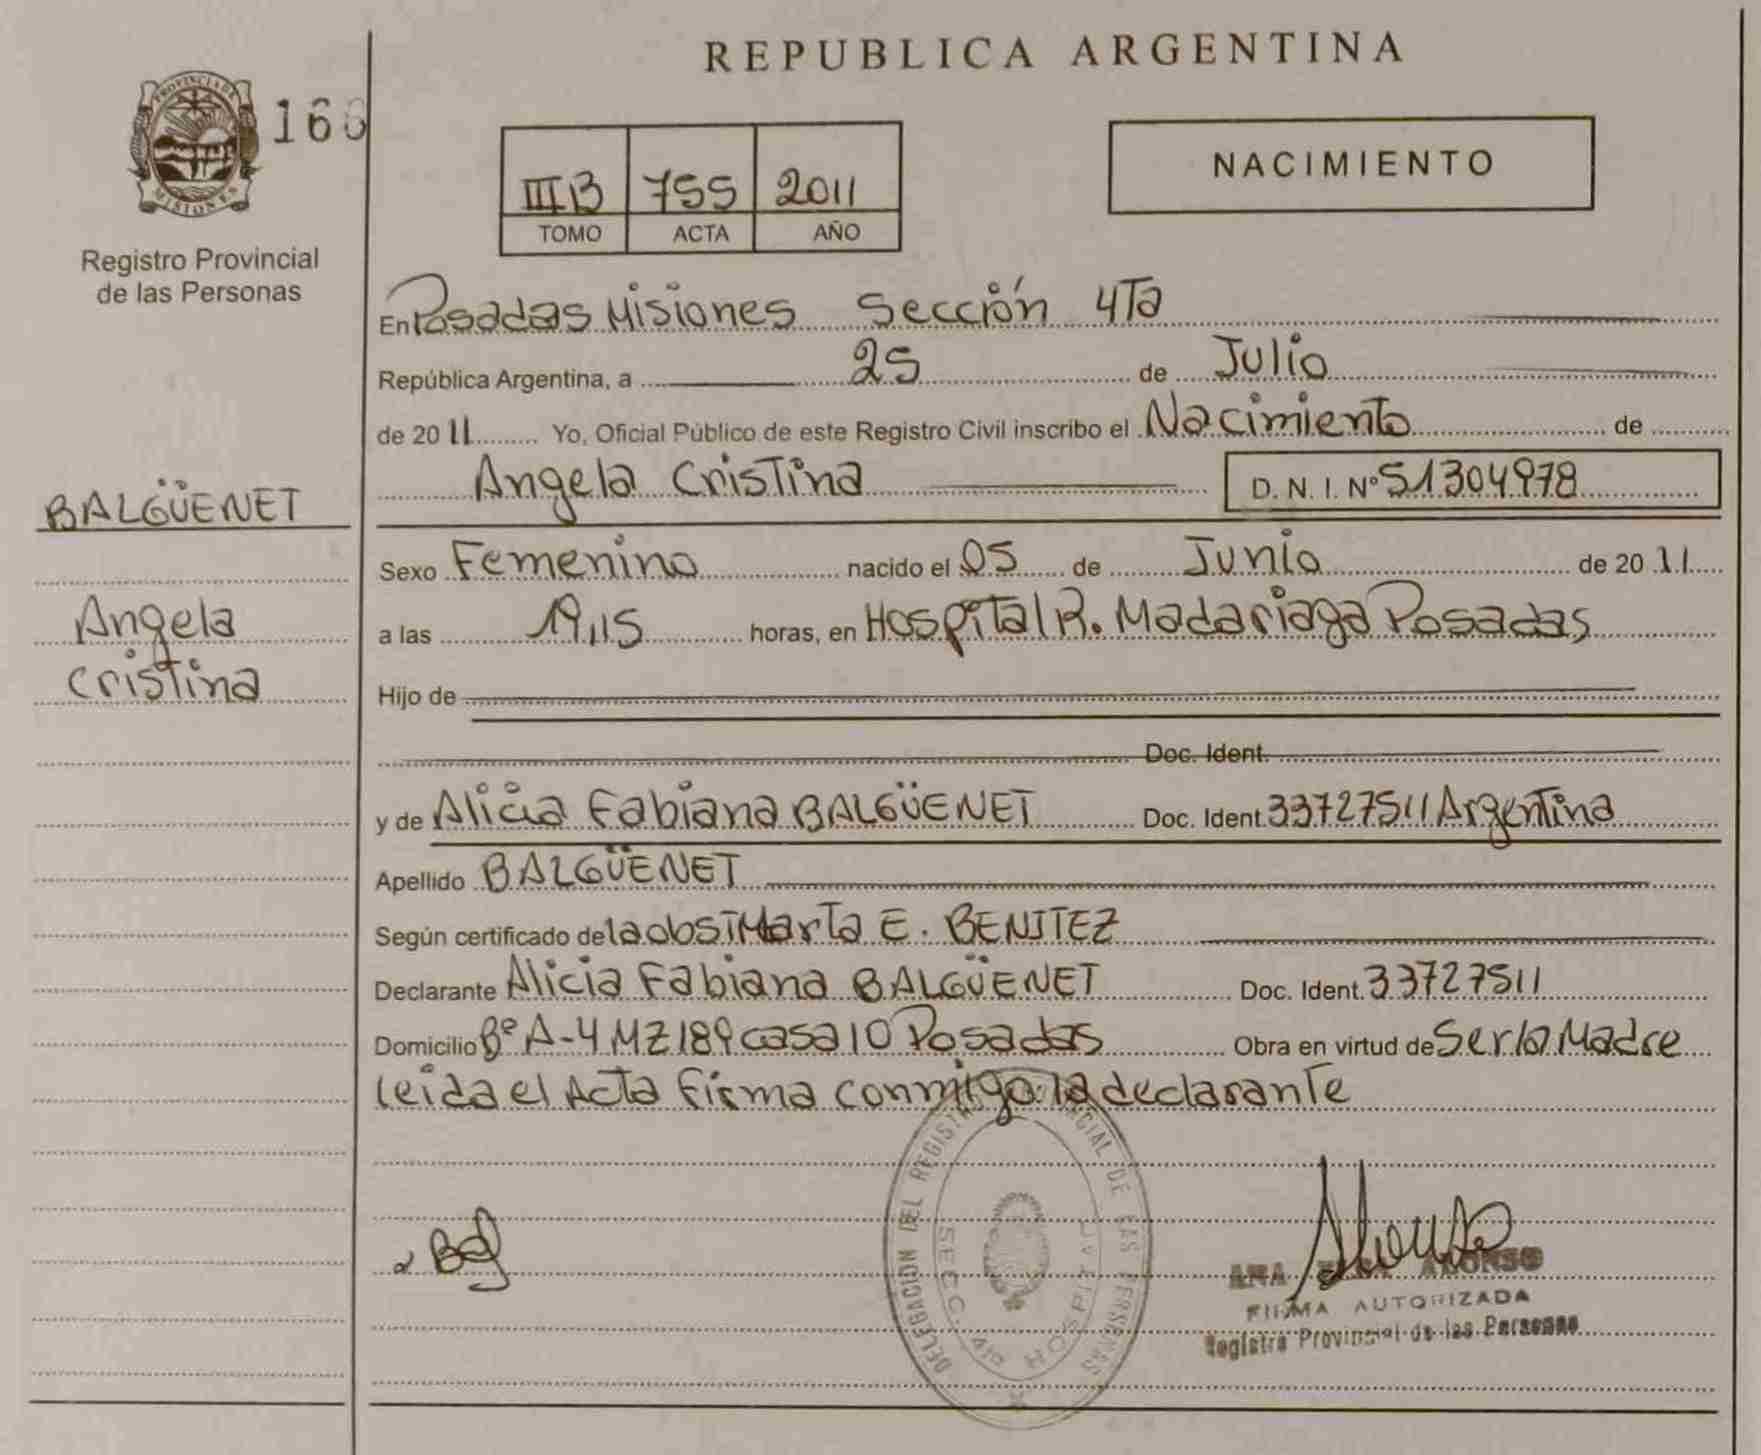 REPUBLICA ARGENTINA
PROVINCIA DE
MISIONES
166
Registro Provincial
de las Personas
III B 755 2011
TOMO ACTA AÑO
NACIMIENTO
En Posadas Misiones Sección 4Ta
República Argentina, a 25 de Julio
de 2011 Yo, Oficial Público de este Registro Civil inscribo el Nacimiento de
Angela Cristina D. N. I. Nº 51304978
BALGÜENET
Angela
Cristina
Sexo Femenino nacido el 05 de Junio de 2011
a las 19,15 horas, en Hospital R. Madariaga Posadas
Hijo de
Doc. Ident.
y de Alicia Fabiana BALGÜENET Doc. Ident. 33727511 Argentina
Apellido BALGÜENET
Según certificado de la obst Marta E. BENITEZ
Declarante Alicia Fabiana BALGÜENET Doc. Ident. 33727511
Domicilio Bº A-4 MZ 189 casa 10 Posadas Obra en virtud de Ser la Madre
leida el Acta Firma conmigo la declarante
DELEGACION DEL REGISTRO PROVINCIAL DE LAS PERSONAS
SECC. 4ta HOSPITAL
ANA ALONSO
FIRMA AUTORIZADA
Registro Provincial de las Personas